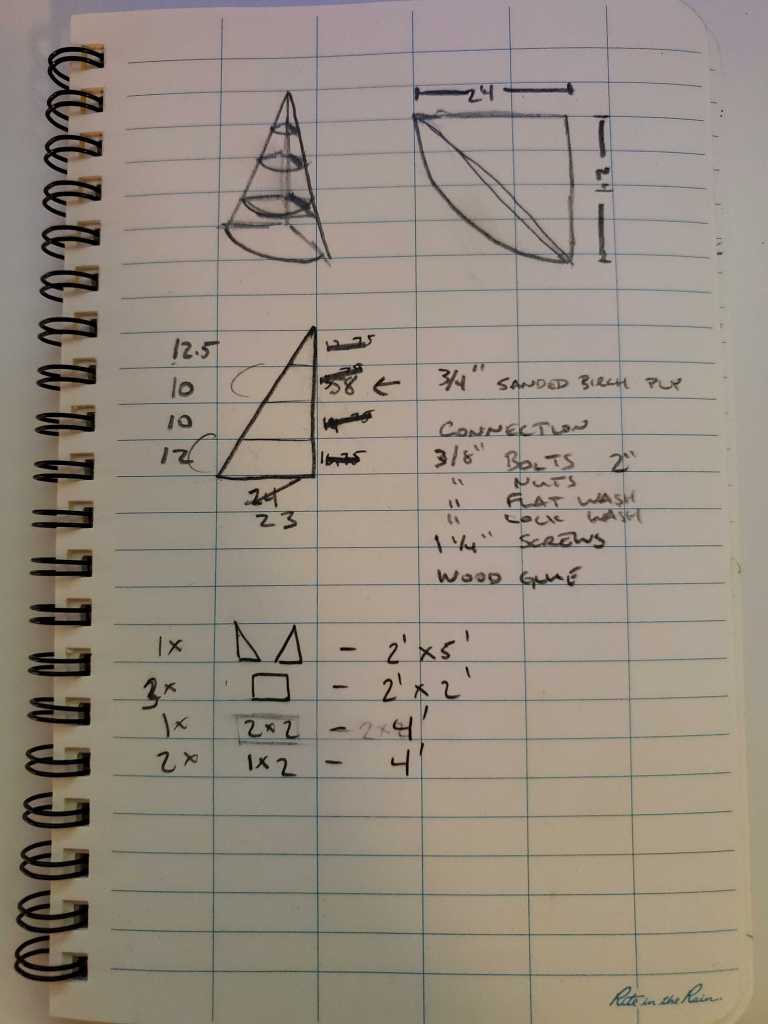 24
12
12.5
10
58 ← 3/4" SANDED BIRCH PLY
10
CONNECTION
12
3/8" BOLTS 2"
" NUTS
24
" FLAT WASH
23
" LOCK WASH
1 1/4" SCREWS
WOOD GLUE
1x - 2' x 5'
3x - 2' x 2'
1x 2x2 - 4'
2x 1x2 - 4'
Rite in the Rain